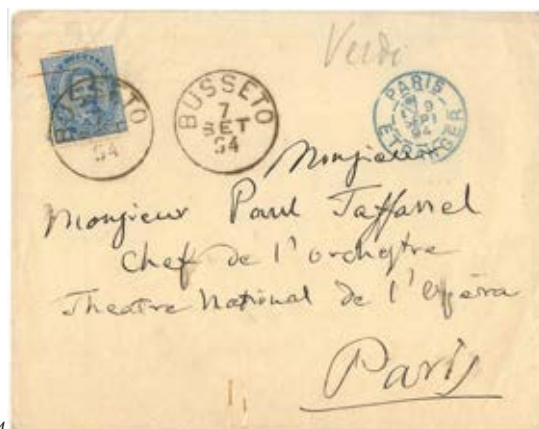 Verdi
BUSSETO
94
BUSSETO
7
SET
94
PARIS
9
94
ETRANGER
Monsieur
Monsieur Paul Taffanel
Chef de l'orchestre
Theatre National de l'Opéra
Paris